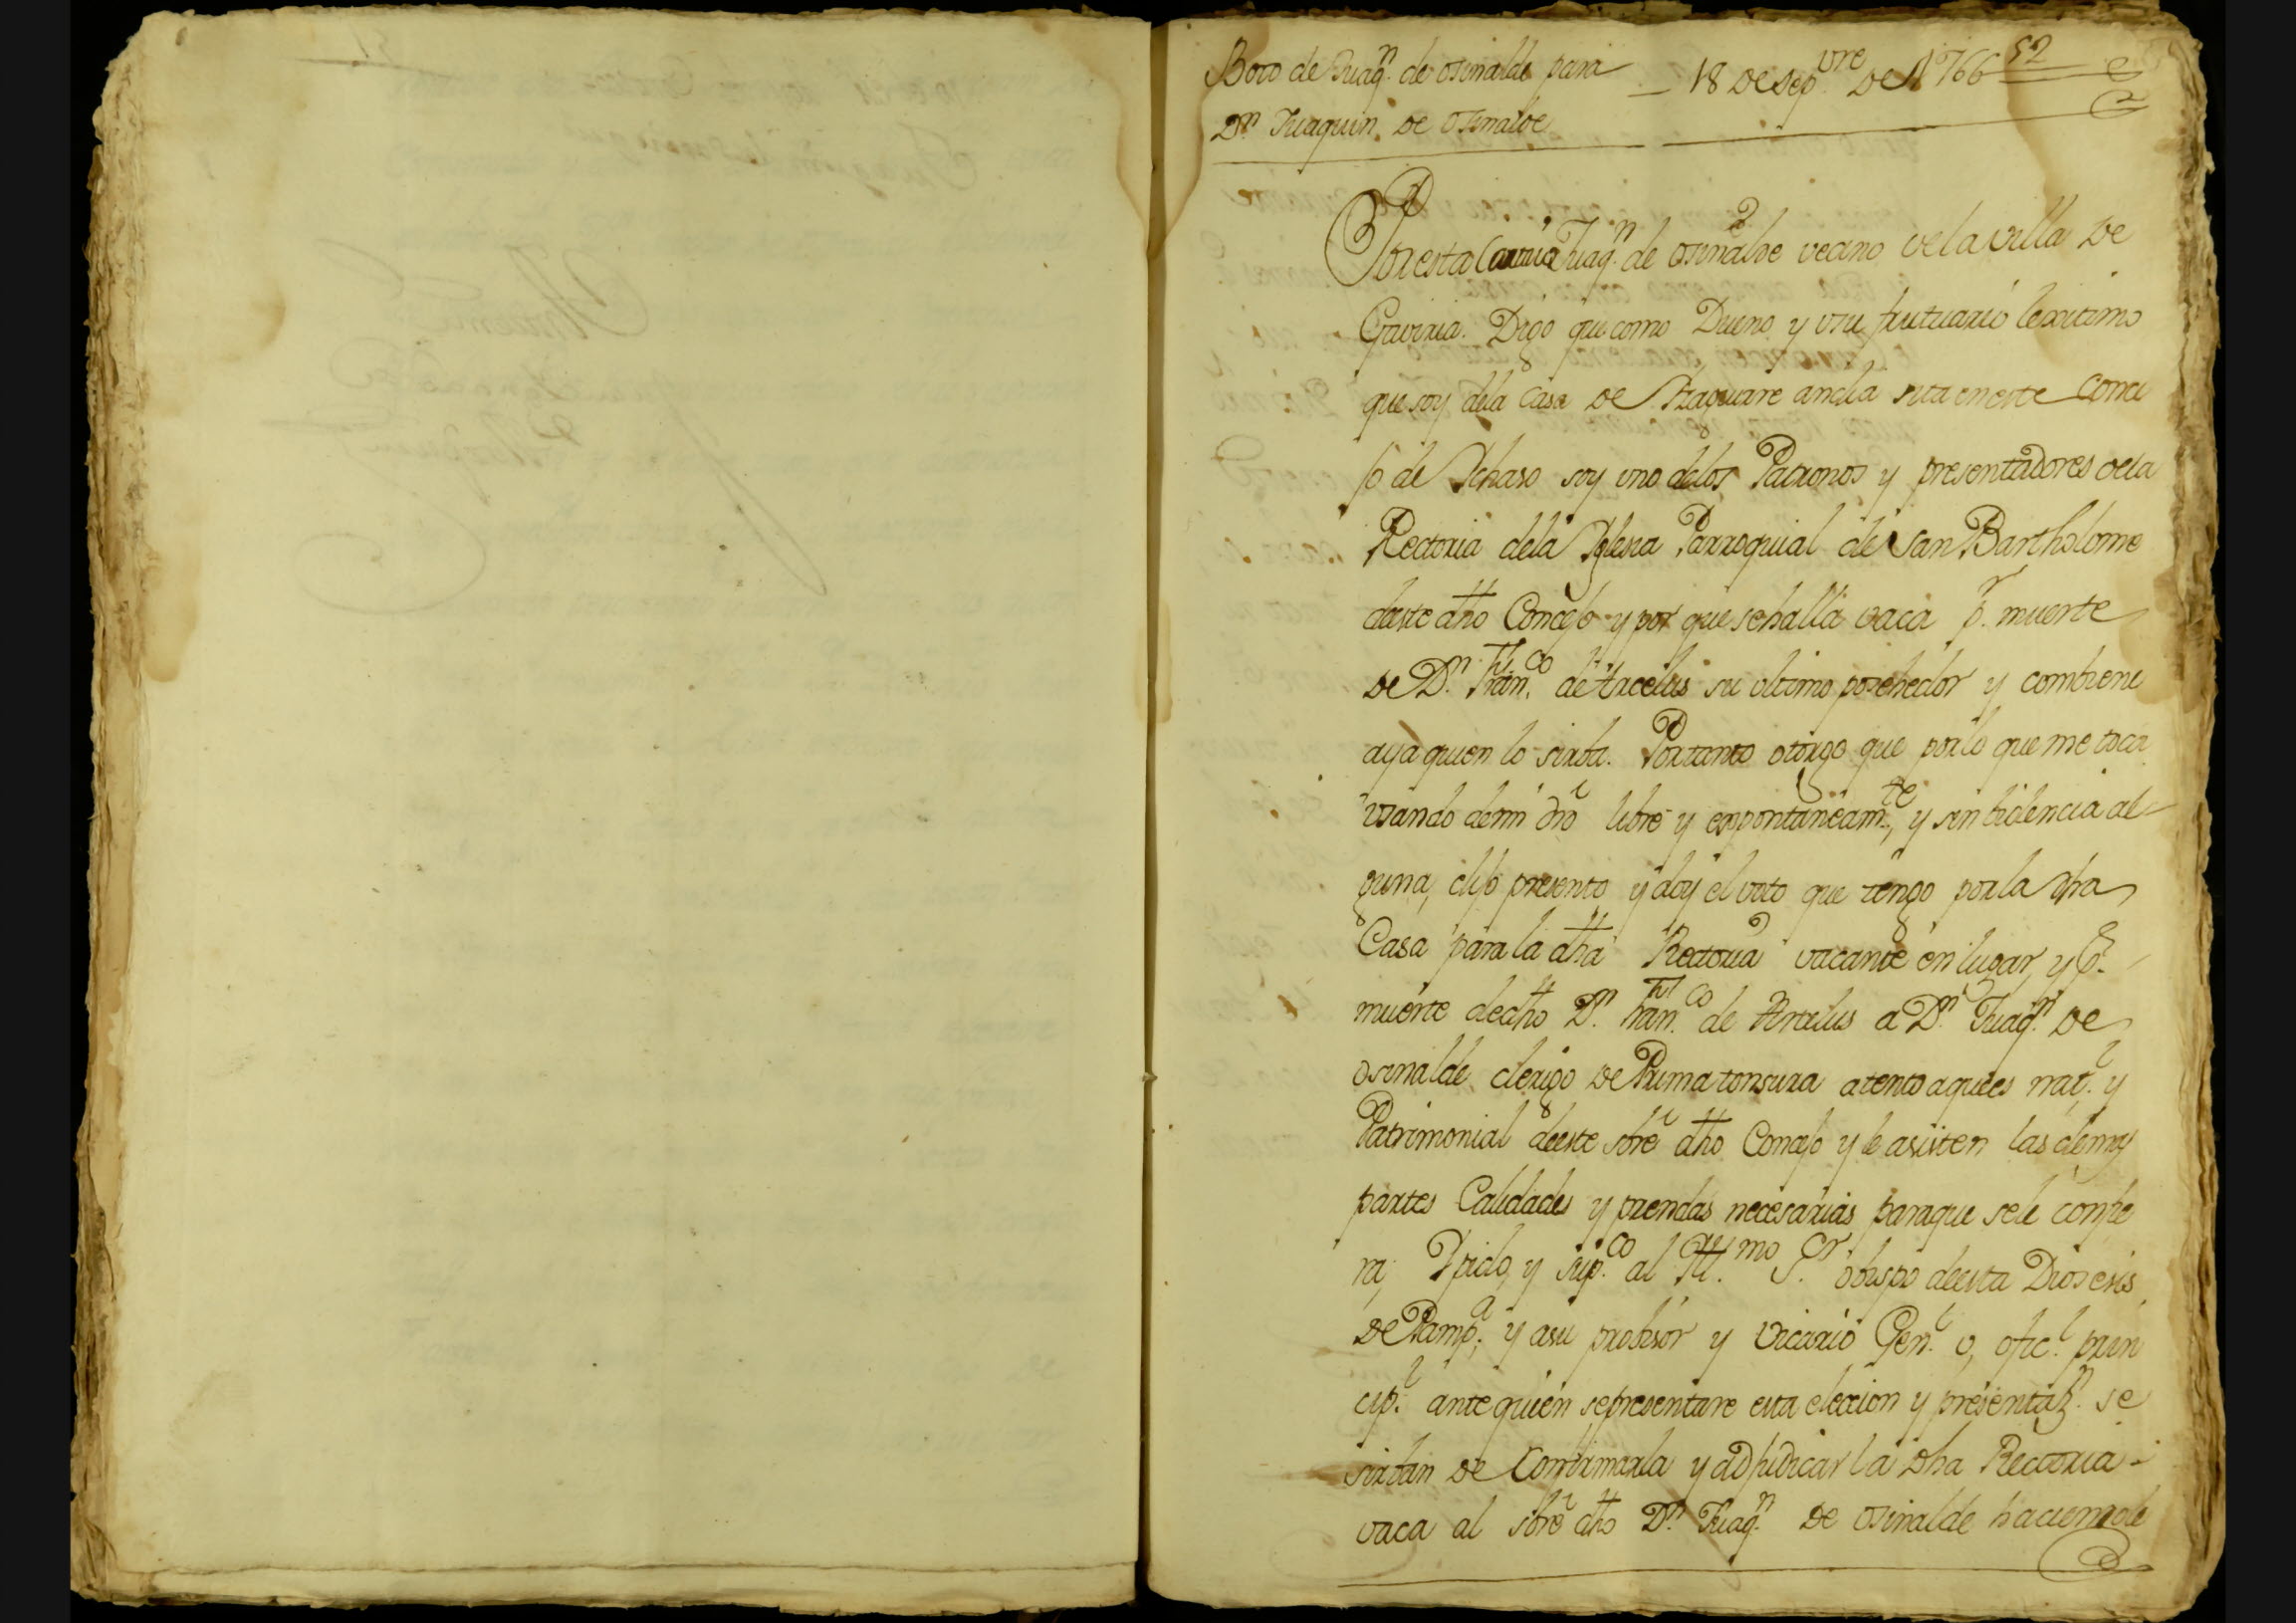 Boto de Juaqn. de osinalde para
Dn. Juaquin de osinalde
18 de sepvre de 1766
52
Por esta Carta Yo Juaqn. de osinalde vecino de la villa de
Gaviria. Digo que como Dueno y usufrutuario lexitimo
que soy dela Casa de Azaguare andia sita en este conce
jo de Ichaso soy uno delos Patronos y presentadores dela
Rectoria dela Yglesia Parroquial de San Bartholome
deste dho Concejo y por que se halla vaca pr. muerte
de Dn. Franco. de Arcelus su ultimo posehedor y combiene
aya quien lo sirba. Portanto otorgo que por lo que me toca
usando de mi dro libre y expontaneamte., y sin bidencia al-
guna, elijo presento y doy el voto que tengo por la dha
Casa para la dha Rectoria vacante en lugar, y pr.
muerte de dho Dn. Franco. de Arcelus a Dn. Juaqn. de
osinalde clerigo de Prima tonsura atento a que es natl. y
Patrimonial deeste sobre dho Concejo y le asisten las demas
partes Calidades y prendas necesarias para que se le confie
ra; Y pido, y supco. al Illmo. Sr. obispo deesta Diosesis
de Pampa. y a su probisor y Vicario Genl. o, oficl. prin
cipl. ante quien se presentare esta eleccion y presentazn. se
sirban de Confirmarla y adjudicar la dha Rectoria
vaca al sobre dho Dn. Juaqn. de osinalde haciendole